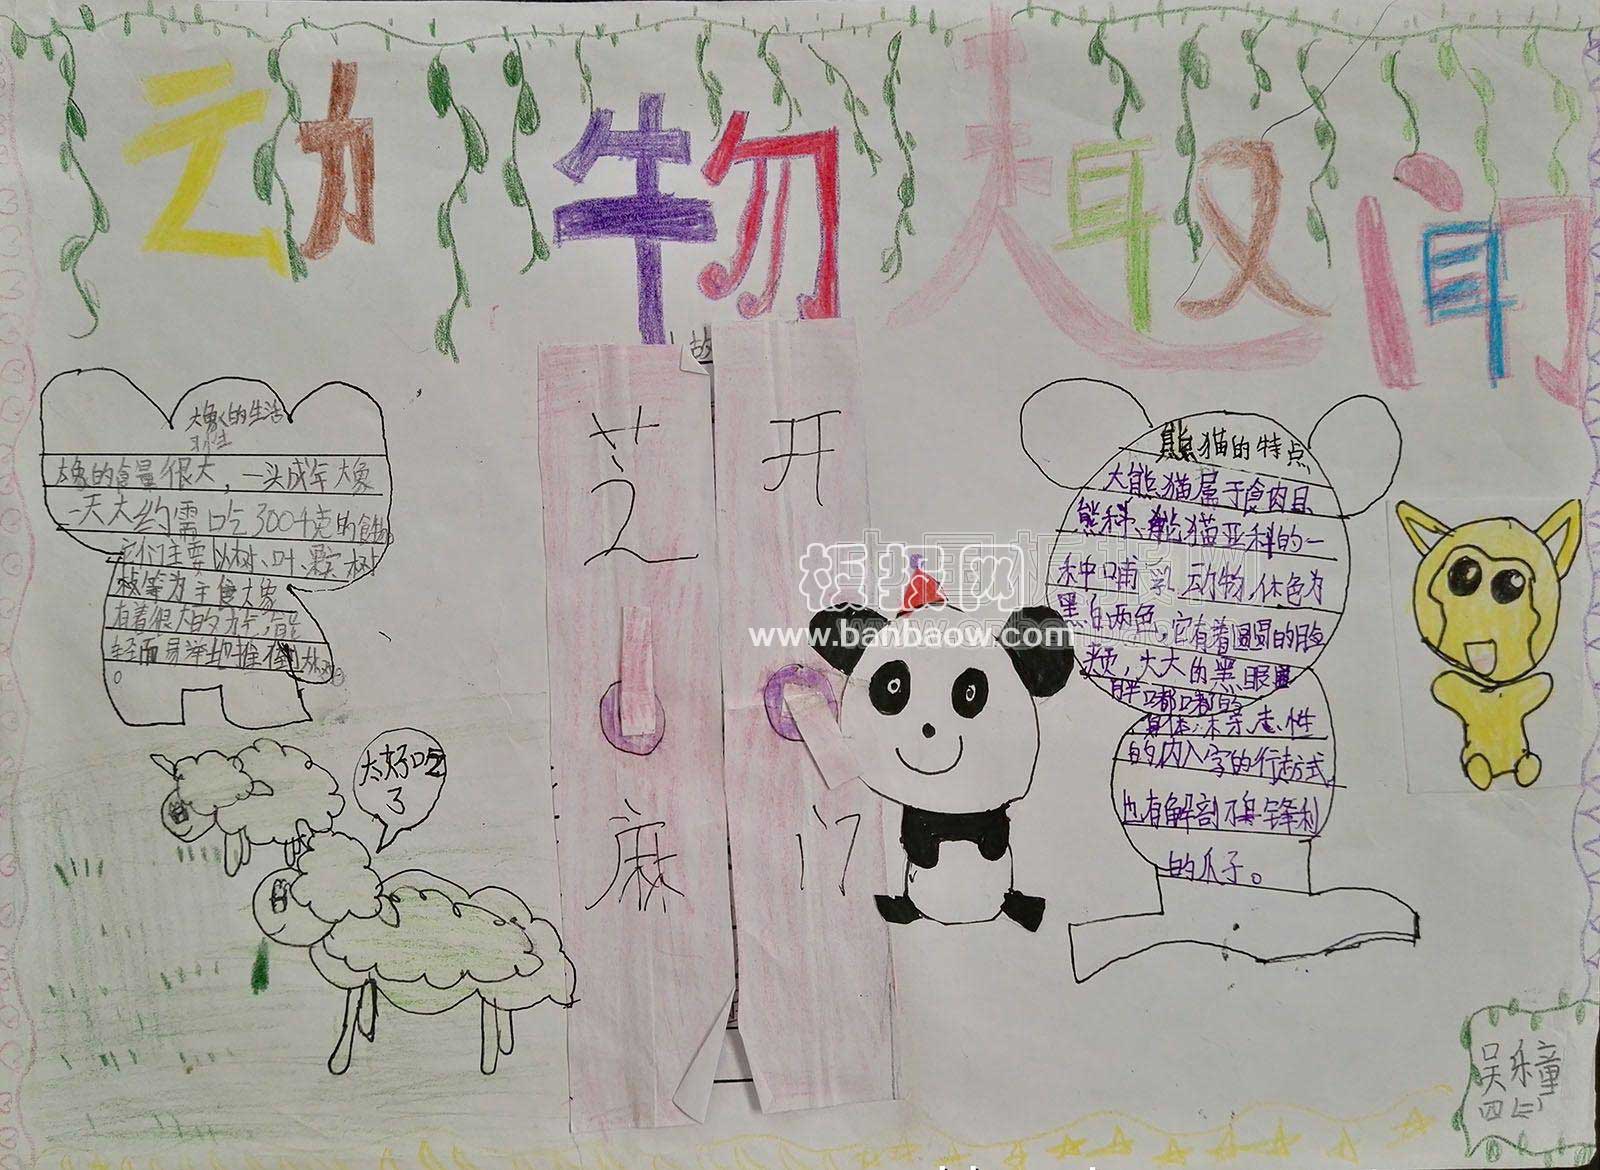 动物趣闻
故
大象的生活
大象的食量很大,一头成年大象
一天大约需吃300千克的食物。
它们主要以树、叶、果、树
枝等为主食大象
有着很大的力气,能
轻而易举地推倒大树
。
太好吃
了
芝
麻
开
门
熊猫的特点
大熊猫属于食肉目
熊科、熊猫亚科的一
种哺乳动物,体色为
黑白两色,它有着圆圆的脸
颊,大大的黑眼圈
胖嘟嘟的
身体,标志性
的内八字的行走方式,
也有解剖刀般锋利
的爪子。
吴乐童
板报网
www.banbaow.com
中国板报网